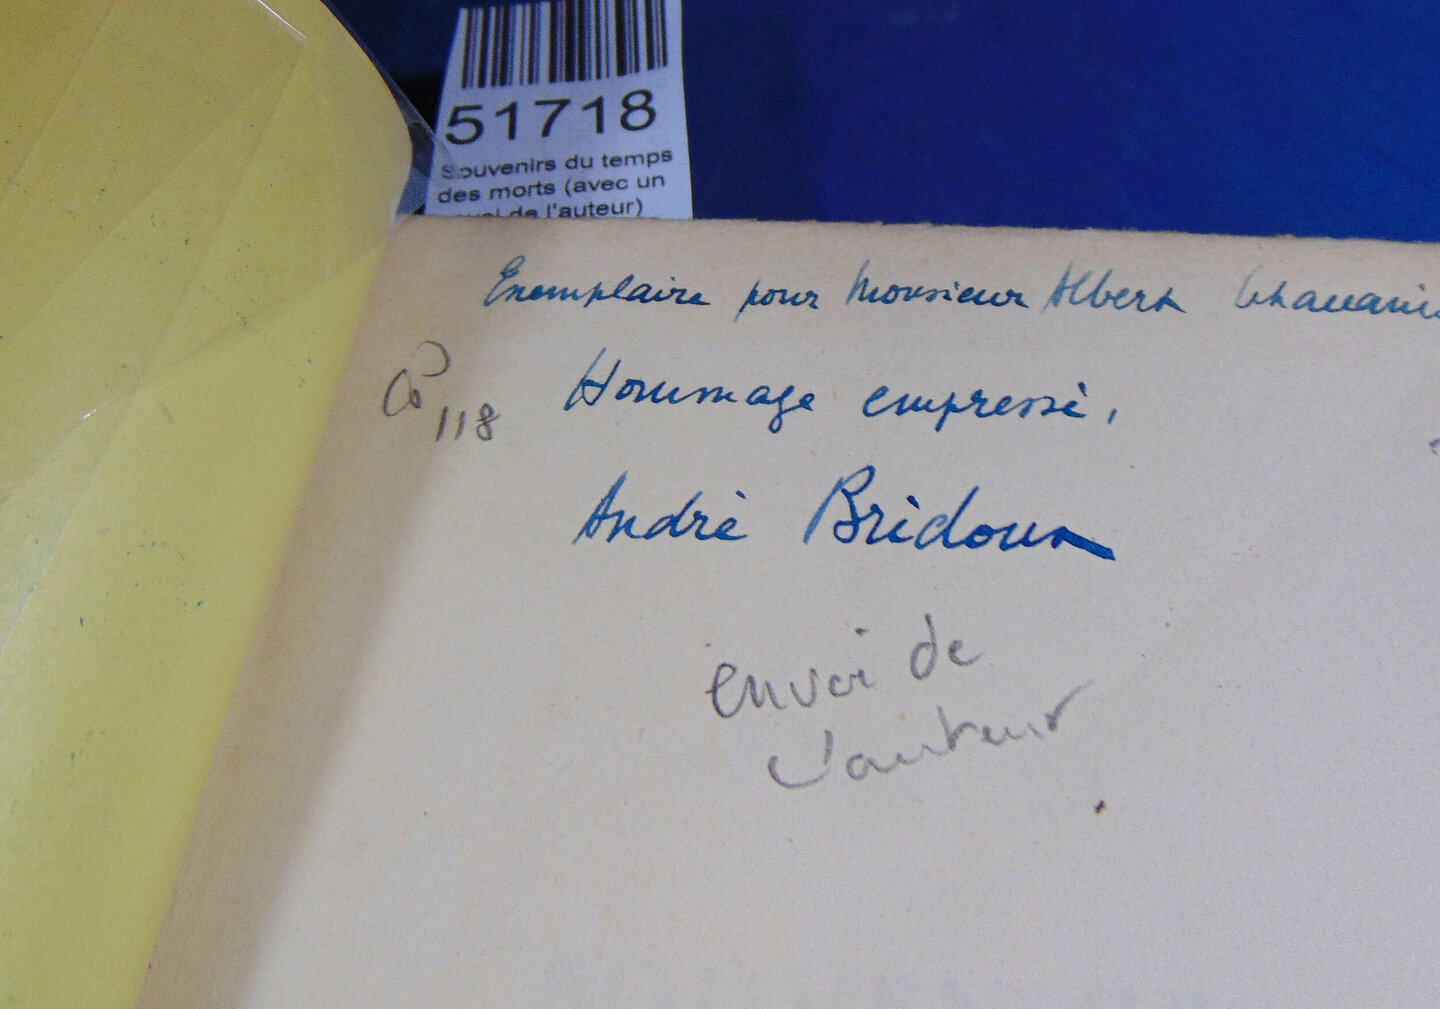 51718
Souvenirs du temps
des morts (avec un
envoi de l'auteur)
Exemplaire pour Monsieur Albert
Hommage empressé,
118
André Bridoux
envoi de
l'auteur